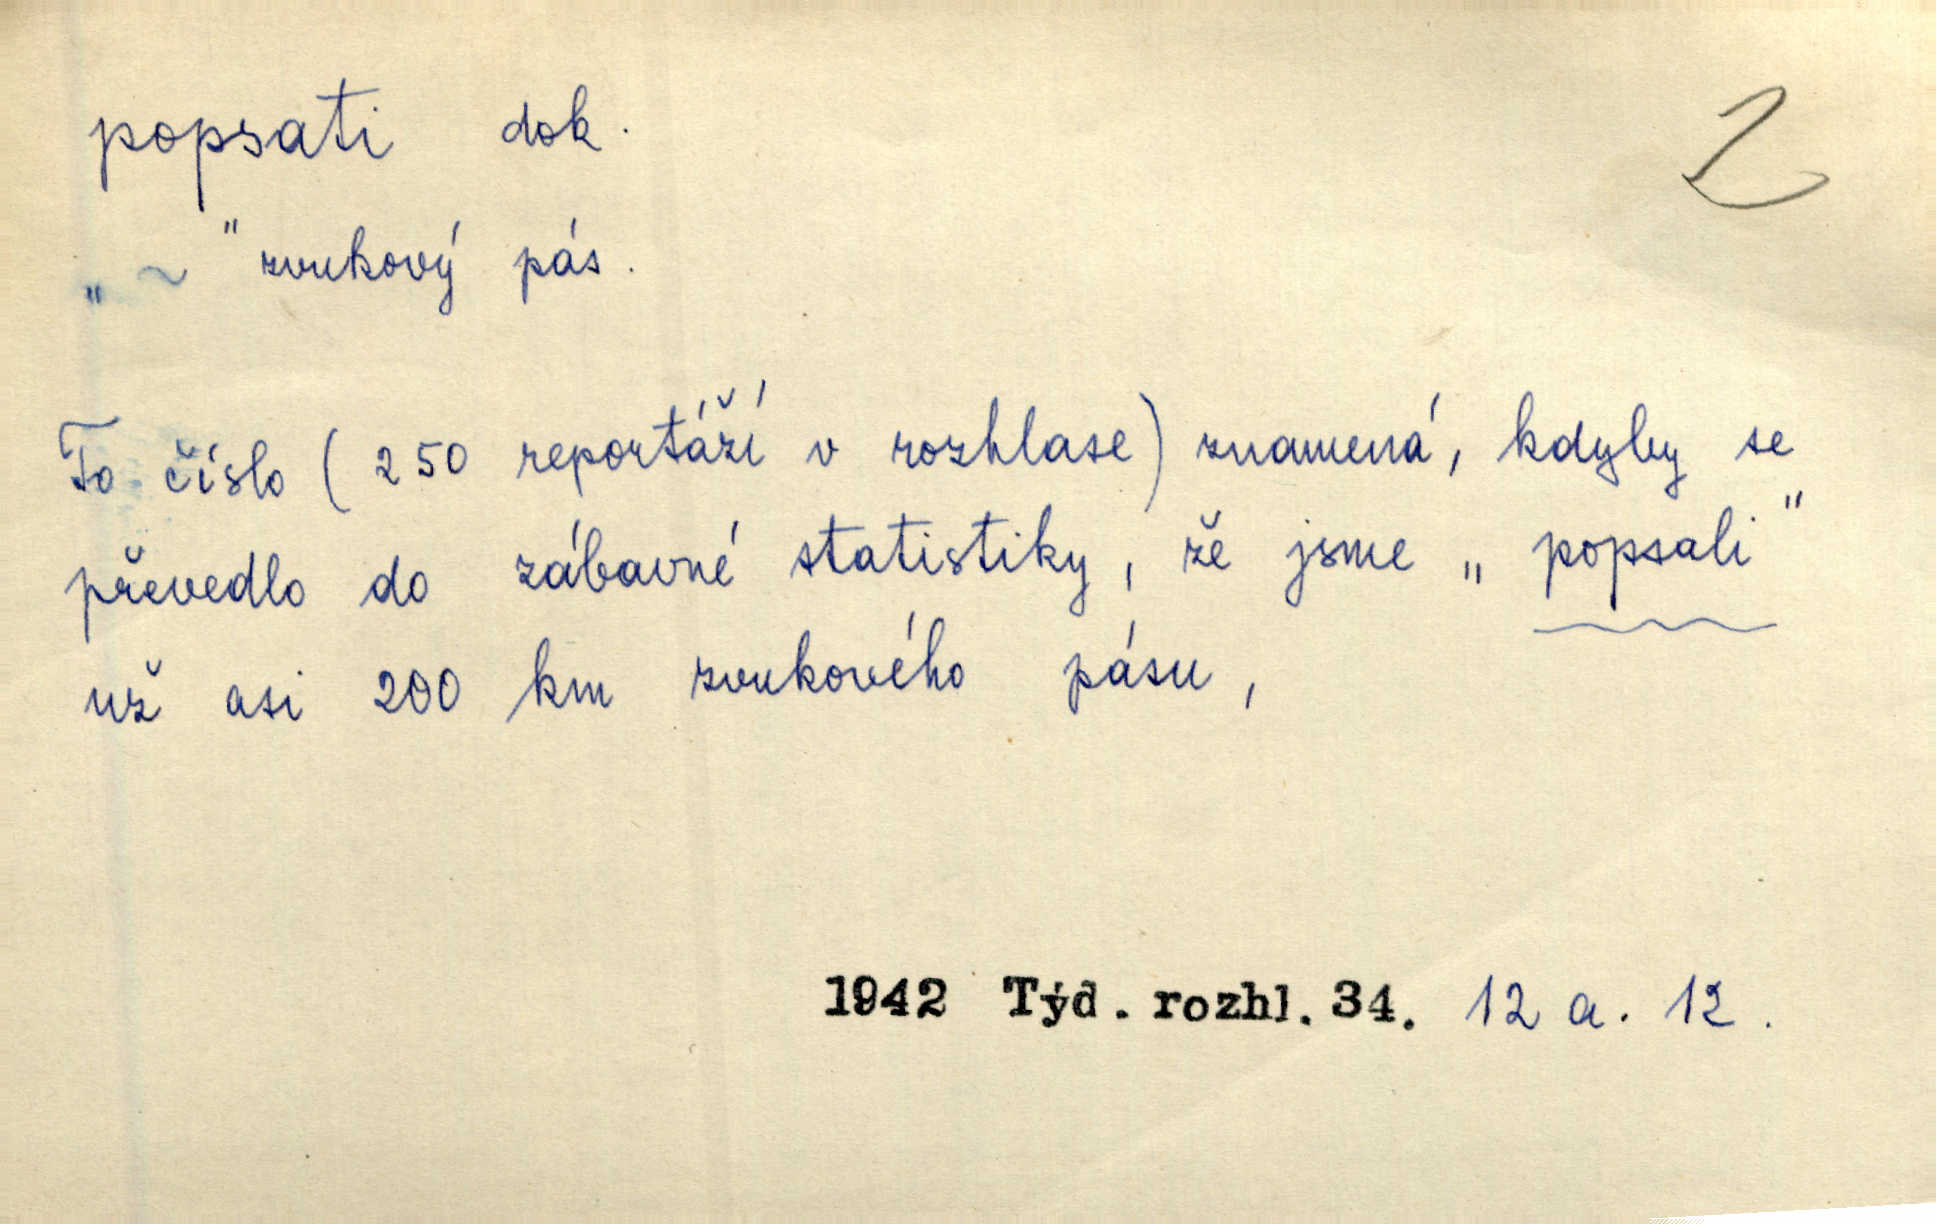 popsati dok. 2
„~" zvukový pás.
To číslo (250 reportáží v rozhlase) znamená, kdyby se
převedlo do zábavné statistiky, že jsme „popsali"
už asi 200 km zvukového pásu,
1942 Týd. rozhl. 34. 12 a. 12.